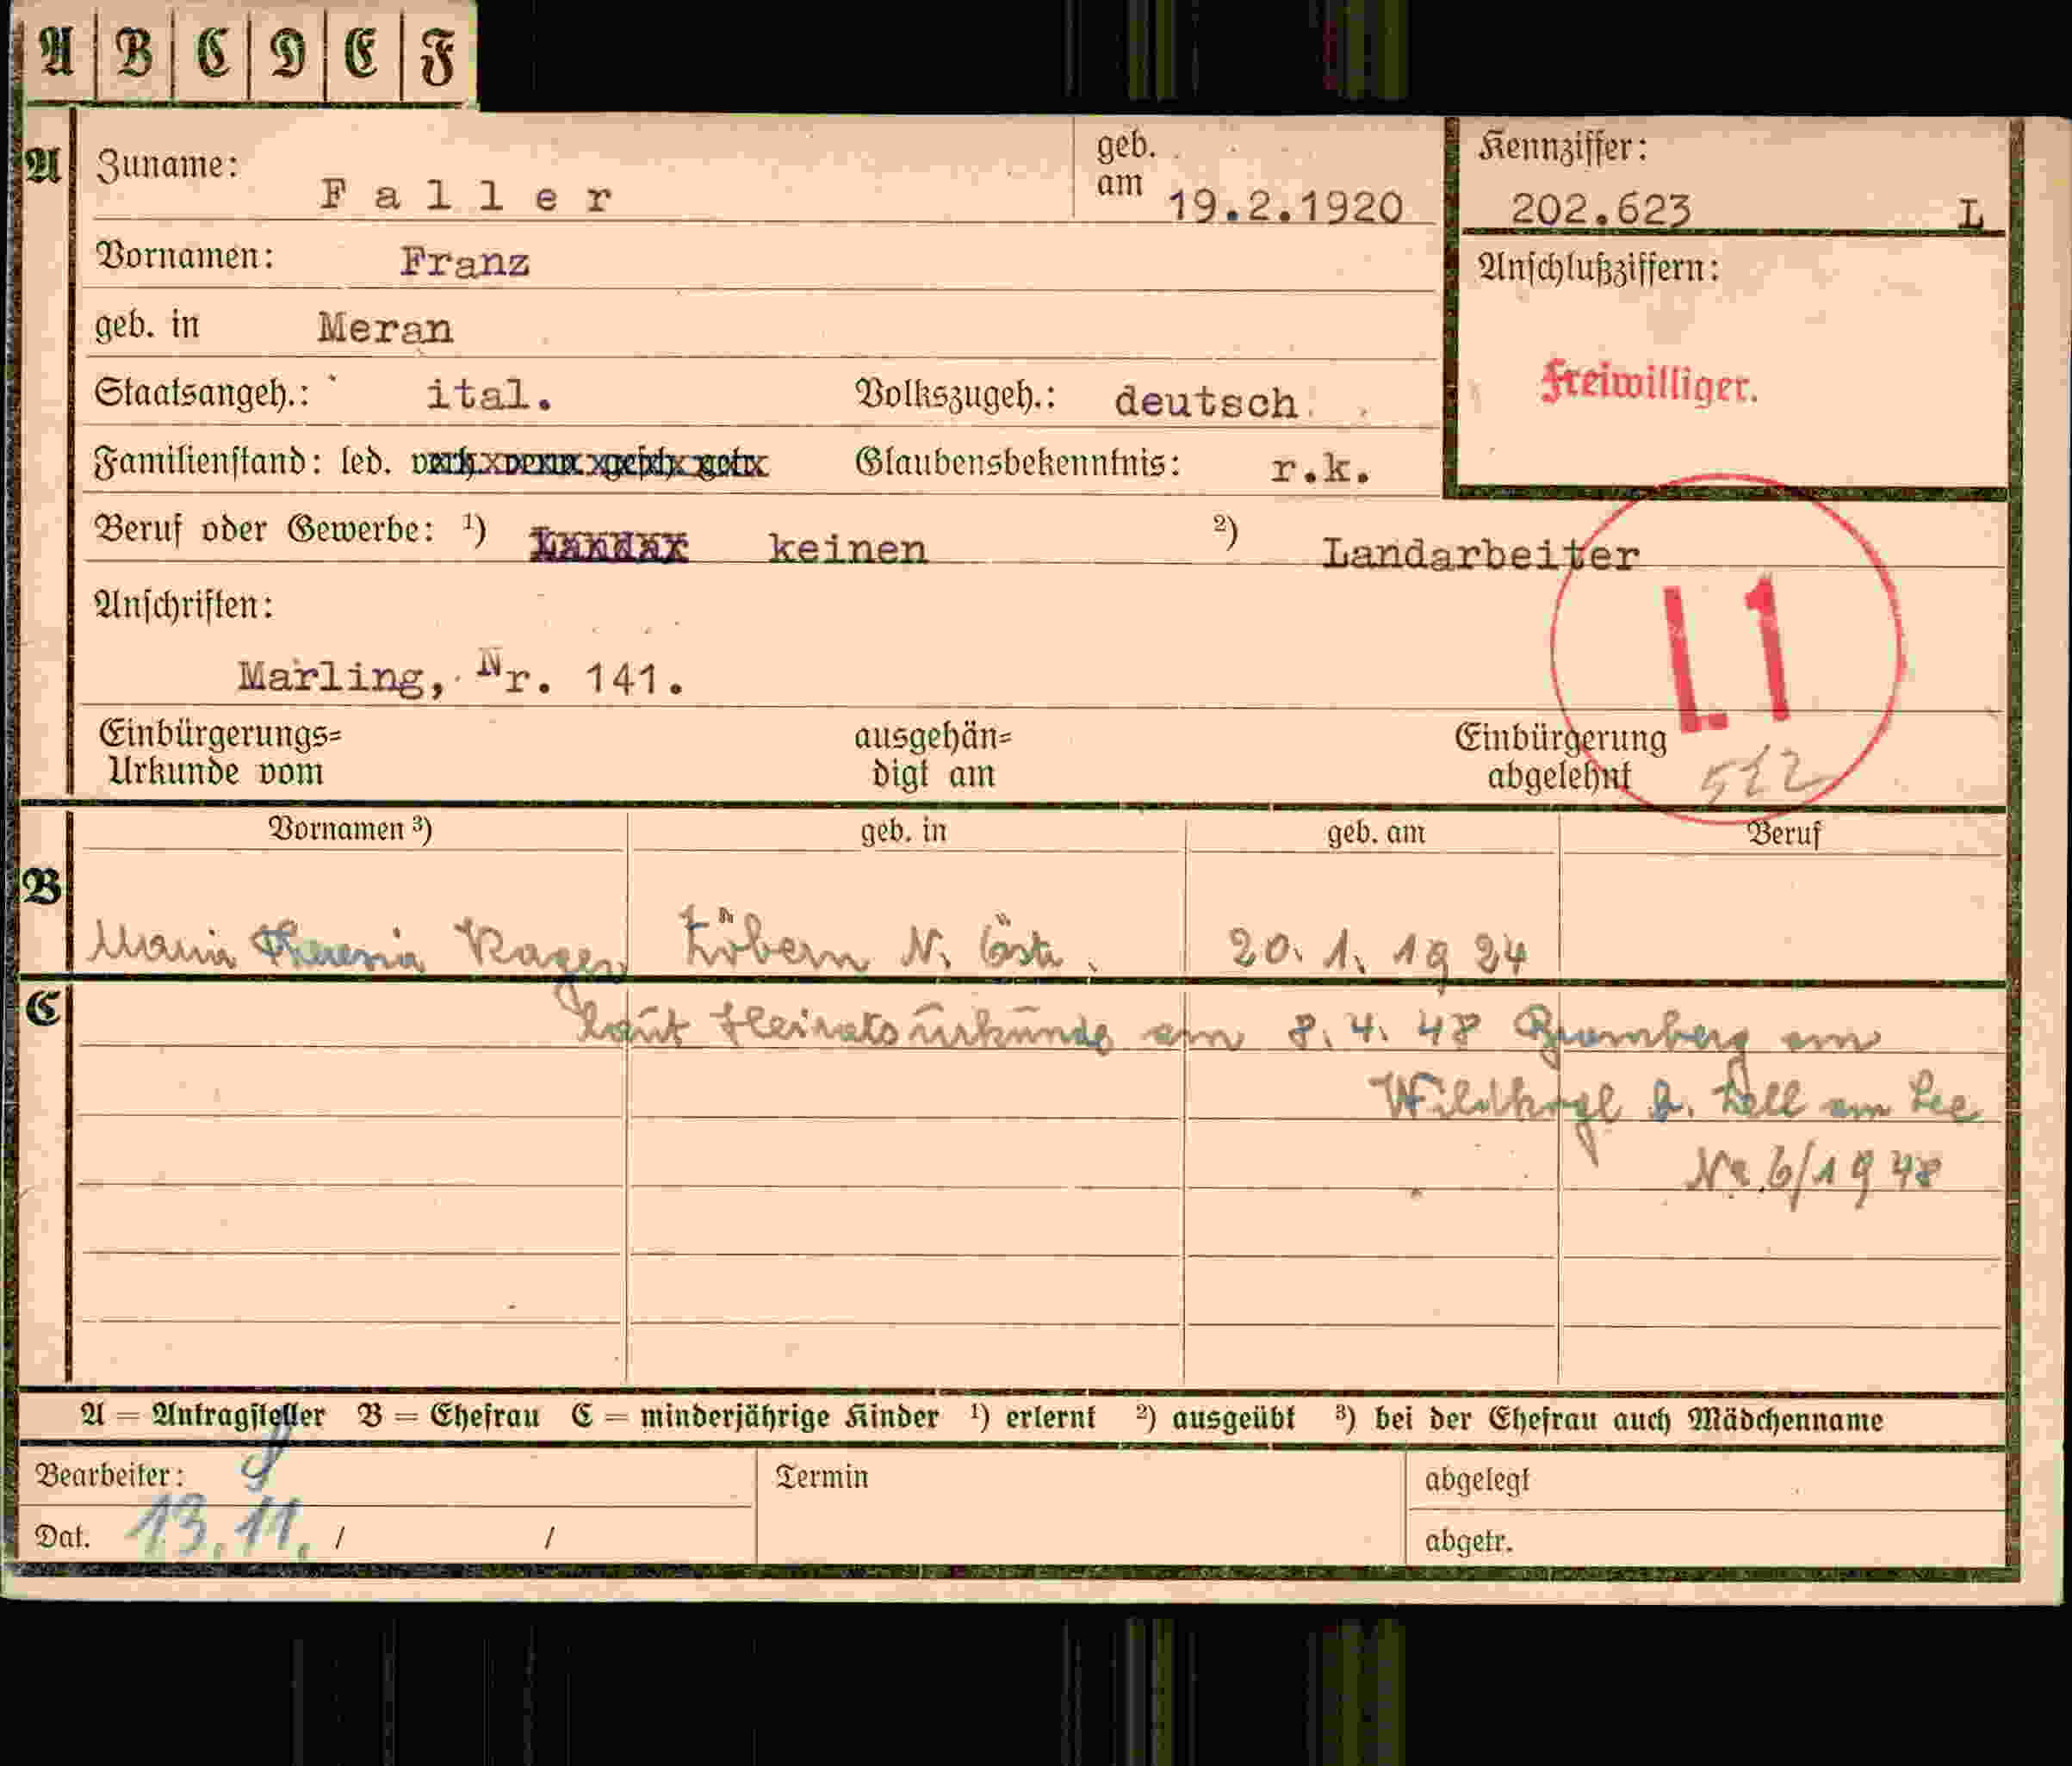 A B C D E F
A Zuname: Faller geb. am 19.2.1920 Kennziffer: 202.623 L
Vornamen: Franz Anschlußziffern:
geb. in Meran Freiwilliger.
Staatsangeh.: ital. Volkszugeh.: deutsch
Familienstand: led. Glaubensbekenntnis: r.k.
Beruf oder Gewerbe: 1) keinen 2) Landarbeiter
Anschriften: L1
Marling, Nr. 141.
Einbürgerungs= ausgehän= Einbürgerung
Urkunde vom digt am abgelehnt 512
Vornamen 3) geb. in geb. am Beruf
B
Maria Theresia N. Öst. 20. 1. 1924
C laut Heiratsurkunde am 8. 4. 48 Bromberg am
Wildkogl b. Zell am See
Nr. 6/1948
A = Antragsteller B = Ehefrau C = minderjährige Kinder 1) erlernt 2) ausgeübt 3) bei der Ehefrau auch Mädchenname
Bearbeiter: Termin abgelegt
Dat. 13.11. / / abgetr.